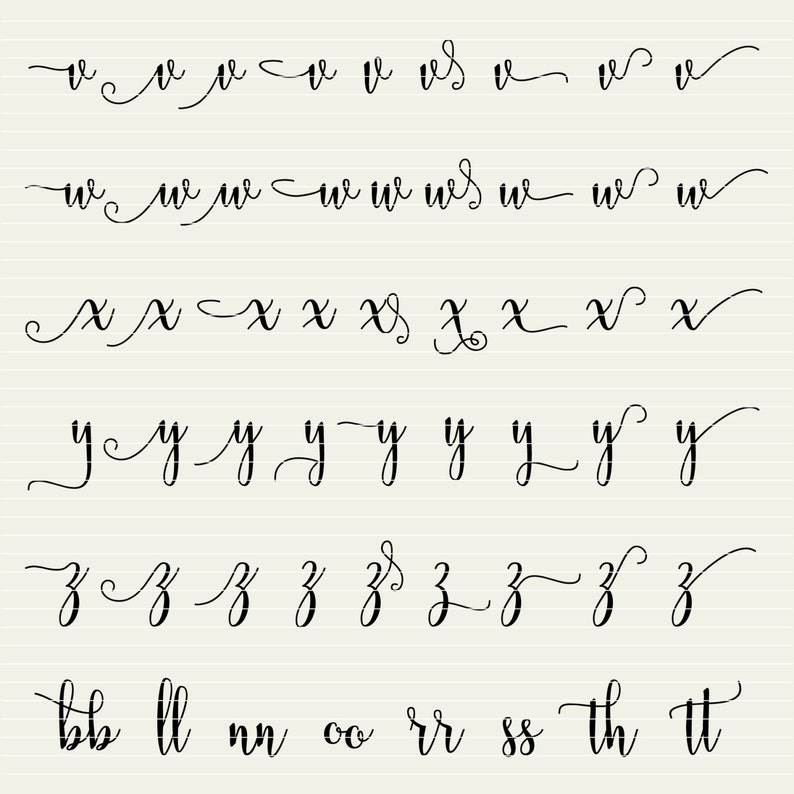 v v v v v v v v v
w w w w w w w w w
x x x x x x x x x
y y y y y y y y y
z z z z z z z z z
bb ll nn oo rr ss th tt